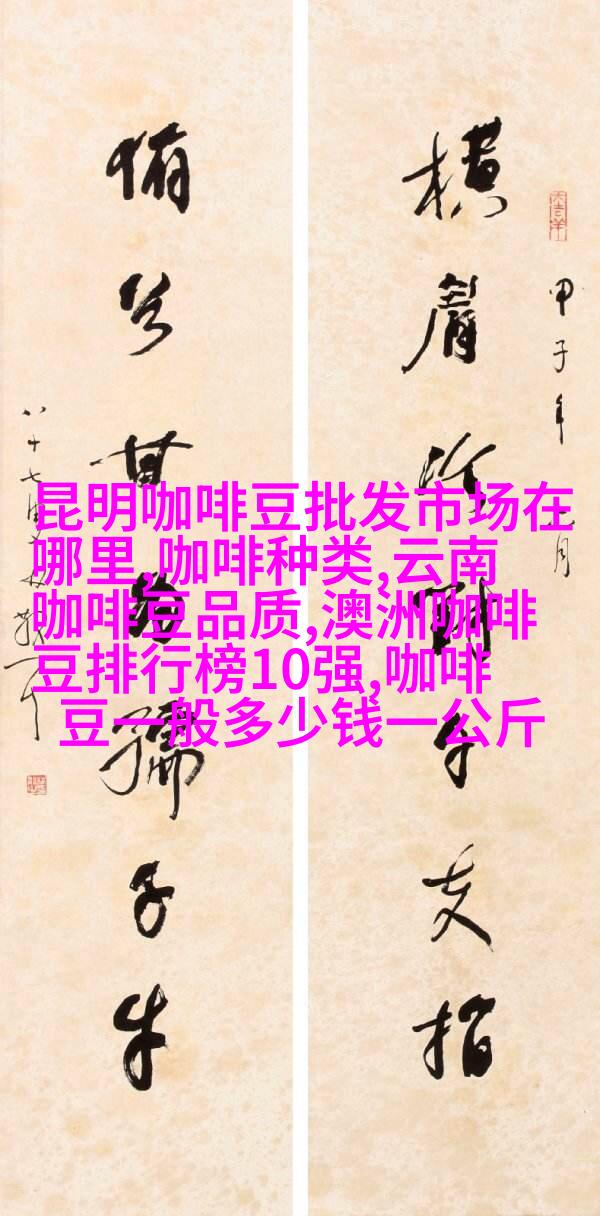 昆明咖啡豆批发市场在
哪里,咖啡种类,云南
咖啡豆品质,澳洲咖啡
豆排行榜10强,咖啡
豆一般多少钱一公斤
甲子年 月
橫眉冷對千夫指
俯首甘為孺子牛
八十七